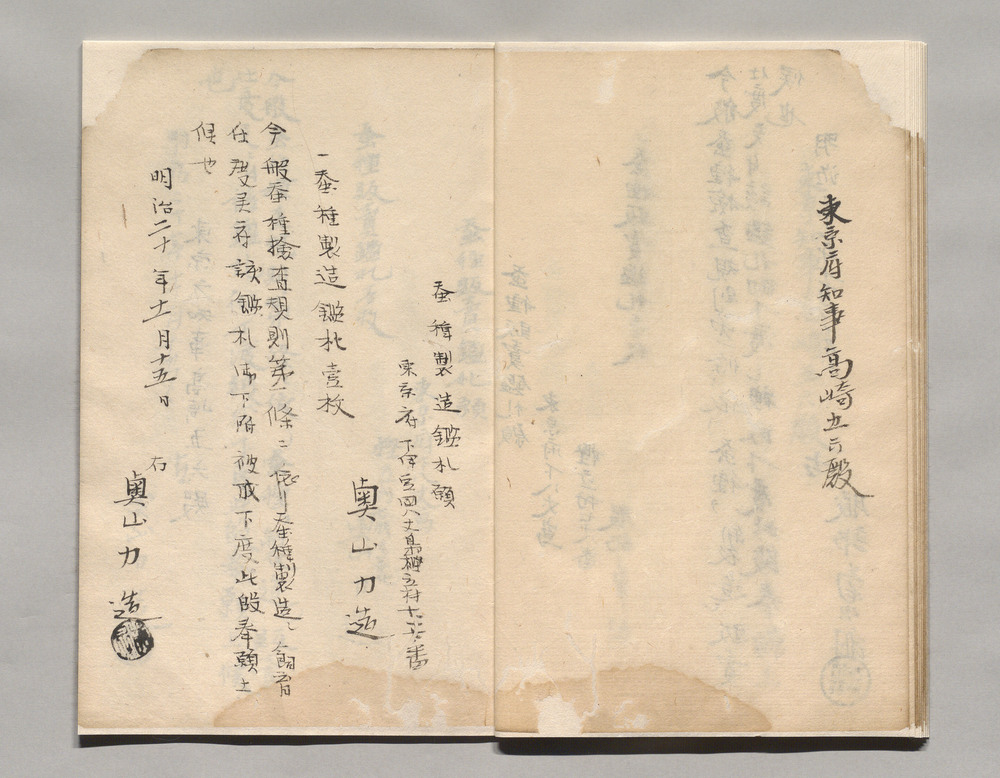 東京府知事高崎五六殿
蚕種製造鑑札願
東京府下伊豆国八丈島樫立村十二番
奥山力造
一蚕種製造鑑札壹枚
今般蚕種撿査規則第一條ニ依リ蚕種製造、飼育
仕度府該鑑札御下附被成下度此段奉願上
候也
明治二十年十一月十五日
右
奥山力造